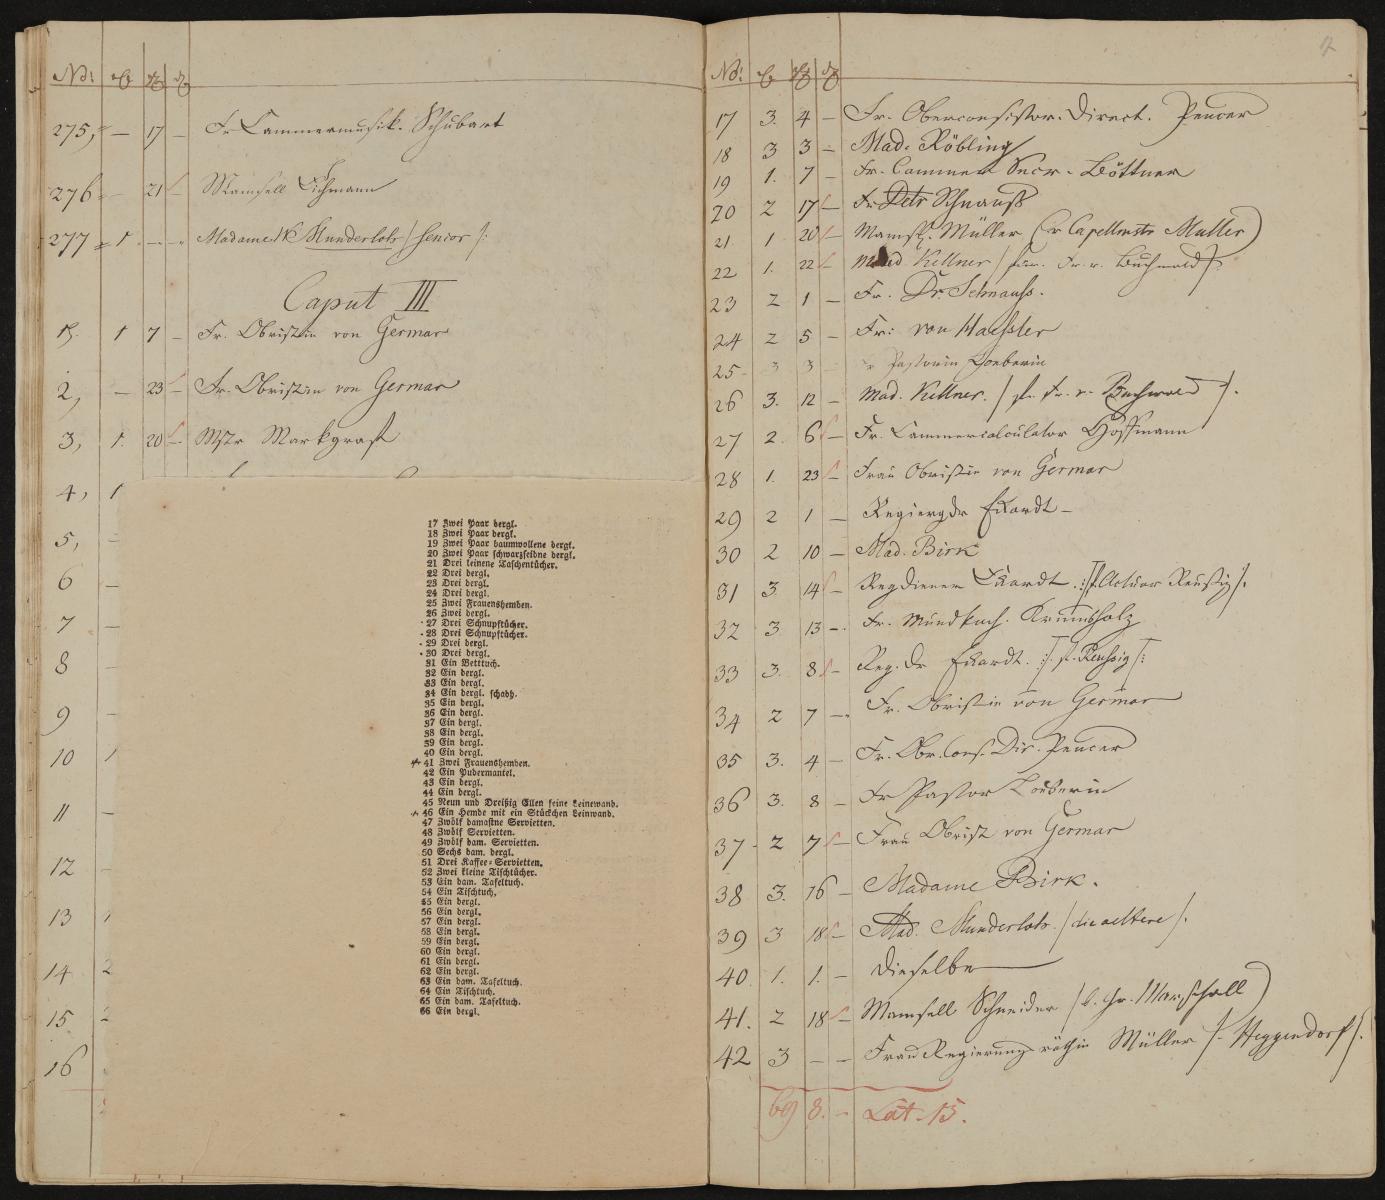 No:
275, — 17 — Fr Cammermusik. Schubart
276 — 21 — Mamsell Eichmann
277 1. — — Madame Munderloh /: senior /:
Caput III
1. 1 7 — Fr. Obristin von Germar
2, — 23 — Fr. Obristin von Germar
3, 1. 20 — Mstr Markgraf
4, 1
5, —
6 —
7 —
8 —
9 —
10 1
11 —
12
13
14 2
15 2
16
17 Zwei Paar dergl.
18 Zwei Paar dergl.
19 Zwei Paar baumwollene dergl.
20 Zwei Paar schwarzseidne dergl.
21 Drei leinene Taschentücher.
22 Drei dergl.
23 Drei dergl.
24 Drei dergl.
25 Zwei Frauenshemden.
26 Zwei dergl.
27 Drei Schnupftücher.
28 Drei Schnupftücher.
29 Drei dergl.
30 Drei dergl.
31 Ein Betttuch.
32 Ein dergl.
33 Ein dergl.
34 Ein dergl. schadh.
35 Ein dergl.
36 Ein dergl.
37 Ein dergl.
38 Ein dergl.
39 Ein dergl.
40 Ein dergl.
41 Zwei Frauenshemden.
42 Ein Pudermantel.
43 Ein dergl.
44 Ein dergl.
45 Neun und Dreißig Ellen feine Leinewand.
46 Ein Hemde mit ein Stückchen Leinwand.
47 Zwölf damastne Servietten.
48 Zwölf Servietten.
49 Zwölf dam. Servietten.
50 Sechs dam. dergl.
51 Drei Kaffee-Servietten.
52 Zwei kleine Tischtücher.
53 Ein dam. Tafeltuch.
54 Ein Tischtuch.
55 Ein dergl.
56 Ein dergl.
57 Ein dergl.
58 Ein dergl.
59 Ein dergl.
60 Ein dergl.
61 Ein dergl.
62 Ein dergl.
63 Ein dam. Tafeltuch.
64 Ein Tischtuch.
65 Ein dam. Tafeltuch.
66 Ein dergl.
No:
17 3. 4 — Fr. Oberconsistor. Direct. Peucer
18 3 3 — Mad. Röbling
19 1. 7 — Fr. Cammer Secr. Böttner
20 2 17 — Fr Schnauß
21 1 20 — Mams. Müller (Capellmstr Müller)
22 1. 22 — Mad Kellner /für. Fr. v. Buchwald/
23 2 1 — Fr. Dr. Schnauss.
24 2 5 — Fr: von Haessler
25 3 3 Pastorin Loeberin
26 3. 12 — Mad. Kellner. /f. Fr. v. Buchwald/.
27 2. 6 — Fr. Cammercalculator Hoffmann
28 1. 23 — Frau Obristin von Germar
29 2 1 — Regiergdr Eckardt —
30 2 10 — Mad. Birk
31 3 14 — Regdiener Eckardt. /:f. Actuar Reussig/:
32 3 13 — Fr. Mundkoch. Krumbholz
33 3. 8 — Reg. dr Eckardt. /: f. Reussig /:
34 2 7 — Fr. Obristin von Germar
35 3. 4 — Fr. Obr. Cons. Dir. Peucer
36 3. 8 — Fr Pastor Loeberin
37 2 7 — Frau Obrist von Germar
38 3. 16 — Madame Birk.
39 3 18 — Mad. Munderloh. /die aeltere/.
40 1. 1. — Dieselbe
41. 2 18 — Mamsell Schneider /b. Gr. Marschall)
42 3 — — Frau Regierungsräthin Müller /. Heygendorf/.
69 8. — Lat. 15.